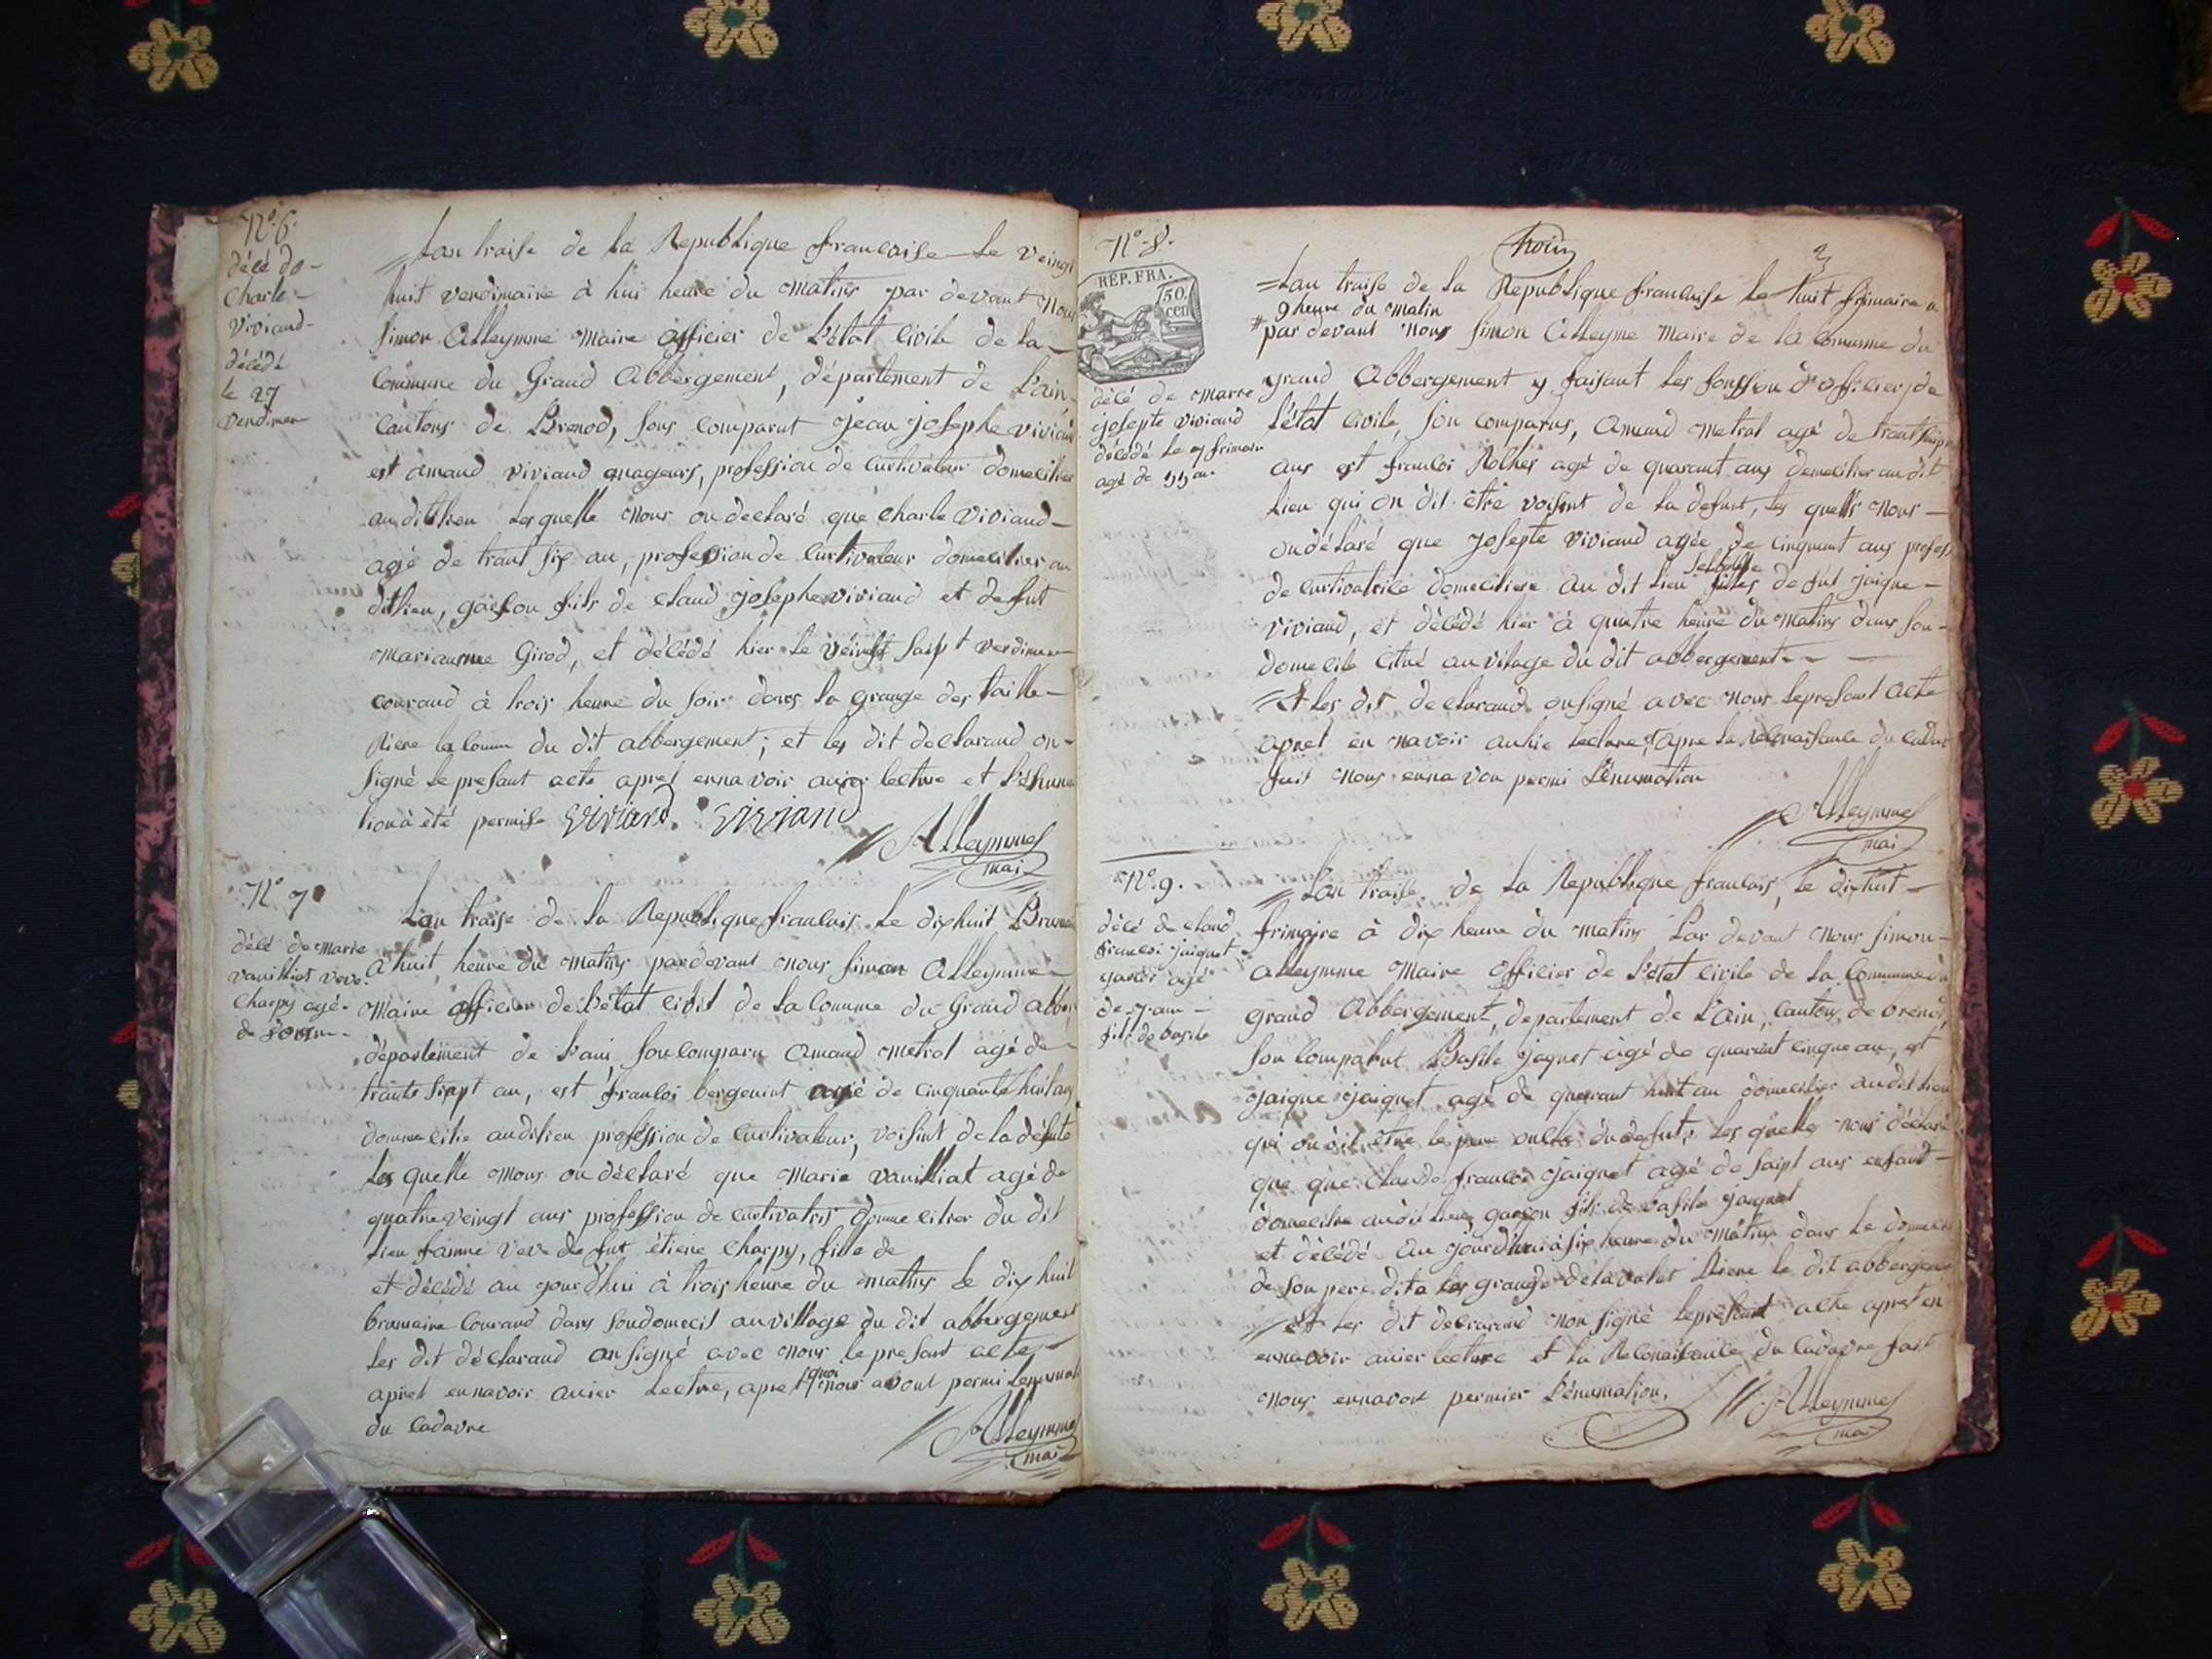 N.º 6.
décé de
Charle
Viviand
décédé
le 27
vendimere
Lan traise de la Republique francaise le veingt
huit vendimaire à hui heure du matins par devant nous
simon Alleymme maire officier de L'état Civile de la
Commune du Grand Abbergement, département de L'ain
Cantons de Brenod, sons comparut jean josephe viviand
est amand viviand majeurs, profession de Curtivateur domecilier
au dit lieu les quelle nous on declaré que Charle Viviand
agé de trant six an, profession de Curtivateur domecilier au
dit lieu, garson fils de claud josephe viviand et defut
mariaume Girod, et décédé hier le veingt saipt verdimere
courand à trois heure du soir dans la grange des taille
Riere la Comm du dit abbergement; et les dit declarand on
signé le presant acte apres ennavoir auier lecture et L'éhuma
tion à èté permise viviand viviand
Alleymme
mai
N.º 7
décé de marie
vauilliat veve
Charpy agé
de 80 an
Lan traise de la Republique francais le dix huit Brumai
à huit heure du matins par devant nous simon Alleymme
Maire officier de L'état Civil de la Comme du Grand abber
département de L'ain son comparu Amand metral agé de
trante saipt an, est francoi bergouint agé de Cinquante huit ans
dommecilie audilieu profession de Curtivateur, voisint de la défute
Les quelle nous on déclaré que Marie vauilliat agé de
quatre veingt ans profession de curtivatris domme cilier du dit
Lieu famme veve de fut étiene Charpy, fille de
et décédé au jourdhui à trois heure du matins le dix huit
bramaire Courand dans soudomecil au village du dit abbergement
les dit déclarand on signé avec nous le presant acte
apret ennavoir auier lectre, apret quoi nous avont permi Lenumati
du Cadavre
Alleymme
mai
N.º 8.
REP. FRA.
50
cen
décé de marie
josepte viviand
décédé le 7 frimair
agé de 55 an
troin
3
Lan traise de la Republique francaise le huit frimaire a
9 heure du matin
par devant nous simon Alleyme maire de la Comunne du
grand Abbergement y faisant les fonssion d'officier de
L'état Civile, son comparus, Amand Metral agé de trant saipt
ans est francoi Rolliés agé de quarant ans demecilier au dit
Lieu qui on dit être voisint de la defunt, les quells nous
on délaré que josepte viviand agée de cinquant ans profess
Selibatte
de Curtivatrice domeciliere au dit Lieu filles defut jaique
viviand, et décédé hier à quatre heure du matins dans son
domecile citué au vilage du dit abbergement
Et les dit declarand onsigné avec nous le presant acte
apret en navoir auhie lecture, apre la reconaissance du Cadav
fait nous enna von permi L'énumation
Alleymme
mai
N.º 9.
décé de claud
francoi jaiquet
garsos agé
de 7 ans
fils de basile
L'an traise, de la Republique francais, le dixhuit
frimaire à dix heure du matins Par devant nous simon
alleymme Maire officier de L'état civile de la Commune du
grand Abbergement, departement de L'Ain, Cantons de brenod
son Comparut Basile jaquet agé de quarant cinque an, est
jaique jaiquet agé de quarant huit an domecilier au dit Lieu
qui on dit être le pere oncle du defut, les quelle nous déclaré
que que Claude francoi jaiquet agé de saipt ans enfand
domecilie audit lieu, garson fils de basile jaiquet
et décédé au jourdhui à six heure du matins dans le domeci
de son pere dit a la grange de la valet Riere le dit abbergem
Et les dit declarand non signé le presant acte apret en
ennavoir auier lecture et la Reconaisance du Cadavre fait
nous ennavont permier L'énumation.
Alleymme
mai